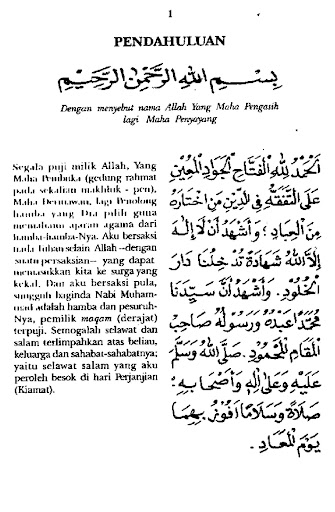 1
PENDAHULUAN
بِسْمِ اللهِ الرَّحْمٰنِ الرَّحِيْمِ
Dengan menyebut nama Allah Yang Maha Pengasih
lagi Maha Penyayang
Segala puji milik Allah, Yang
Maha Pembuka (gedung rahmat
pada sekalian makhluk - pen),
Maha Dermawan, lagi Penolong
hamba yang Dia pilih guna
memahami ajaran agama dari
hamba-hamba-Nya. Aku bersaksi
tiada Tuhan selain Allah --dengan
suatu persaksian-- yang dapat
memasukkan kita ke surga yang
kekal. Dan aku bersaksi pula,
sungguh baginda Nabi Muham-
mad adalah hamba dan pesuruh-
Nya, pemilik maqam (derajat)
terpuji. Semogalah selawat dan
salam terlimpahkan atas beliau,
keluarga dan sahabat-sahabatnya;
yaitu selawat salam yang aku
peroleh besok di hari Perjanjian
(Kiamat).
اَلْحَمْدُ لِلّٰهِ الْفَتَّاحِ الْجَوَادِ الْمُعِيْنِ
عَلَى التَّفَقُّهِ فِي الدِّيْنِ مَنِ اخْتَارَهُ
مِنَ الْعِبَادِ؛ وَأَشْهَدُ أَنْ لَا إِلٰهَ
إِلَّا اللهُ شَهَادَةً تُدْخِلُنَا دَارَ
الْخُلُوْدِ. وَأَشْهَدُ أَنَّ سَيِّدَنَا
مُحَمَّدًا عَبْدُهُ وَرَسُوْلُهُ صَاحِبُ
الْمَقَامِ الْمَحْمُوْدِ. صَلَّى اللهُ وَسَلَّمَ
عَلَيْهِ وَعَلَى اٰلِهِ وَأَصْحَابِهِ؛
صَلَاةً وَسَلَامًا أَفُوْزُ بِهِمَا
يَوْمَ الْمَعَادِ.